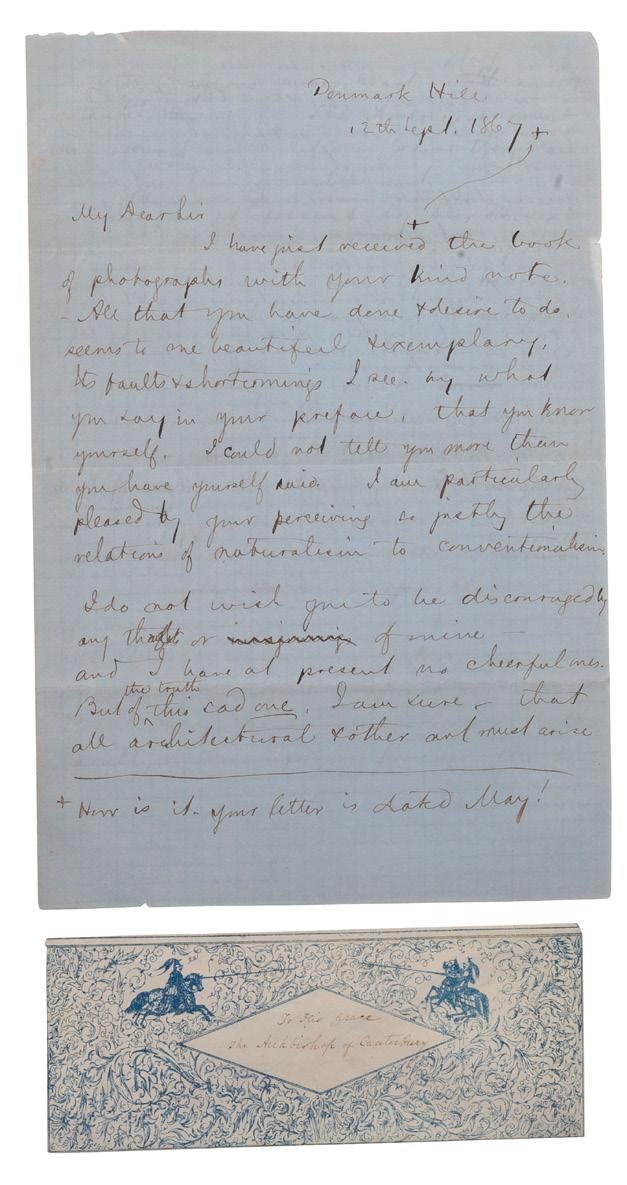 Denmark Hill
12th Sept. 1867 +
My Dear Sir
+
I have just received the book
of photographs with your kind note.
- All that you have done & desire to do,
seems to me beautiful & exemplary,
Its faults & shortcomings I see. by what
you say in your preface, that you know
yourself. I could not tell you more than
you have yourself said. I am particularly
pleased by your perceiving so justly the
relations of naturalism to conventionalism
I do not wish you to be discouraged by
any thought or of mine
and I have at present no cheerful ones.
But of the truth this sad one, I am sure - that
all architectural & other art must arise
+ How is it - your letter is dated May!
To His Grace
the Archbishop of Canterbury